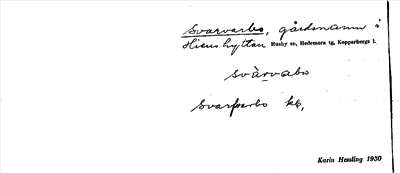 Svarvarbo, gårdsnamn i
Stienshyttan Husby sn, Hedemora tg, Kopparbergs l.
svàrvabo
Svarfvarbo kk,
Karin Hessling 1930